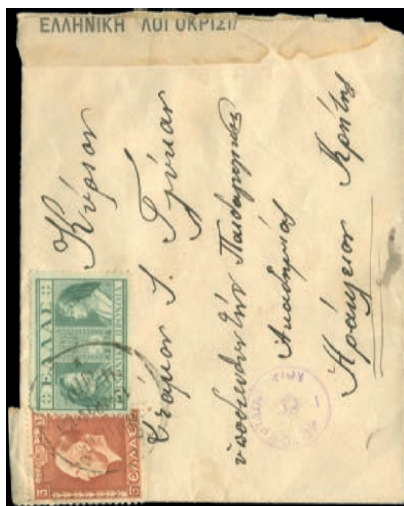 ΕΛΛΗΝΙΚΗ ΛΟΓΟΚΡΙΣΙ
Κύριον
Στάμον Ι. Γρύκαν
ὑποδιευθυντὴν Παιδαγωγικῆς
Ἀκαδημίας
Ἡράκλειον Κρήτης
ΕΛΛΑΣ
5 ΕΛΛΑΣ 5